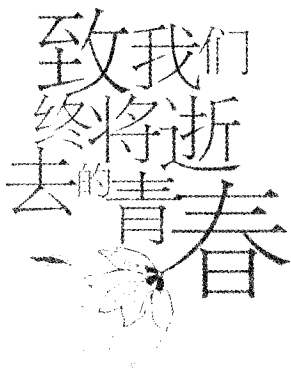 致我们
终将逝
去的青春